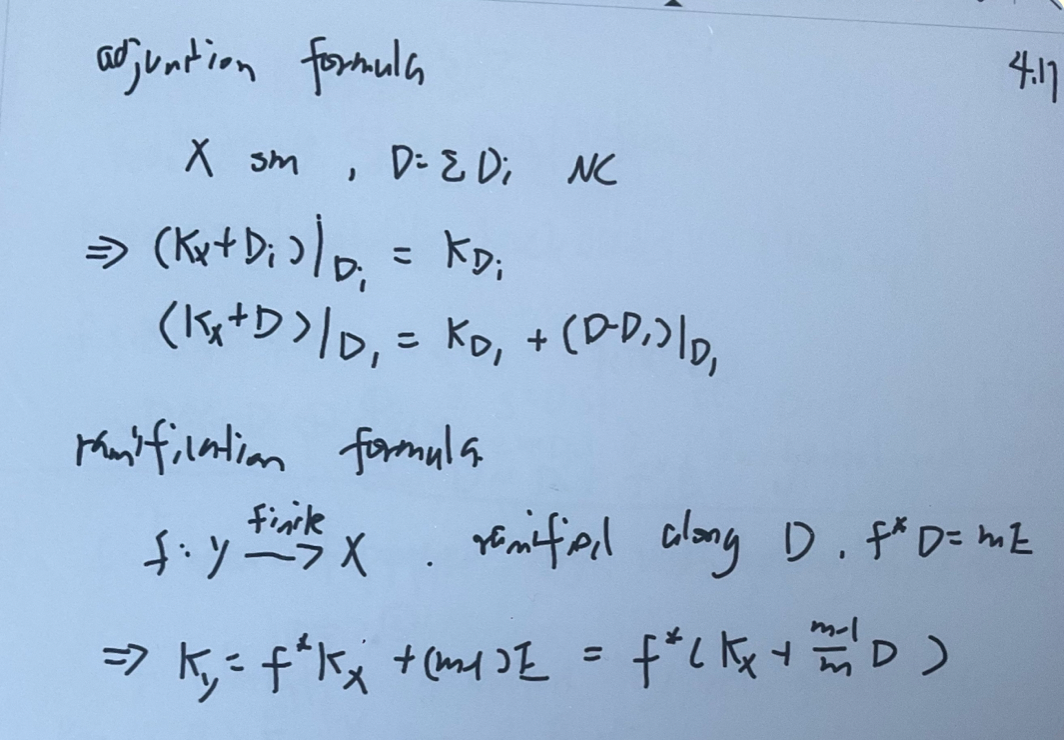 adjuntion formula
4.17
X sm , D = Σ Di NC
⇒ (Kx + Di)|Di = KDi
(Kx + D)|D1 = KD1 + (D-D1)|D1
ramification formula
f: y finite→ X . ramified along D . f*D = mE
⇒ Ky = f*Kx + (m-1)E = f*(Kx + m-1/m D)